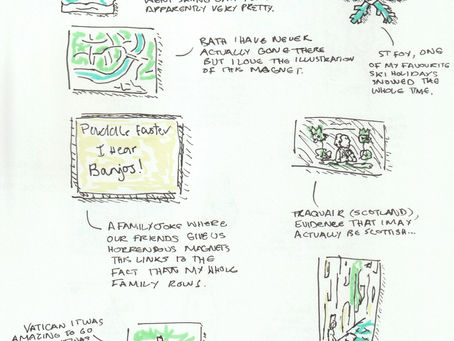 APPARENTLY VERY PRETTY.
BATH I HAVE NEVER
ACTUALLY GONE THERE
BUT I LOVE THE ILLUSTRATION
OF THIS MAGNET.
ST FOY, ONE
OF MY FAVOURITE
SKI HOLIDAYS
SNOWED THE
WHOLE TIME.
Paddle Faster
I Hear
Banjos!
A FAMILY JOKE WHERE
OUR FRIENDS GIVE US
HORRENDOUS MAGNETS
THIS LINKS TO THE
FACT THAT MY WHOLE
FAMILY ROWS.
TRAQUAIR (SCOTLAND),
EVIDENCE THAT I MAY
ACTUALLY BE SCOTTISH...
VATICAN IT WAS
AMAZING TO GO